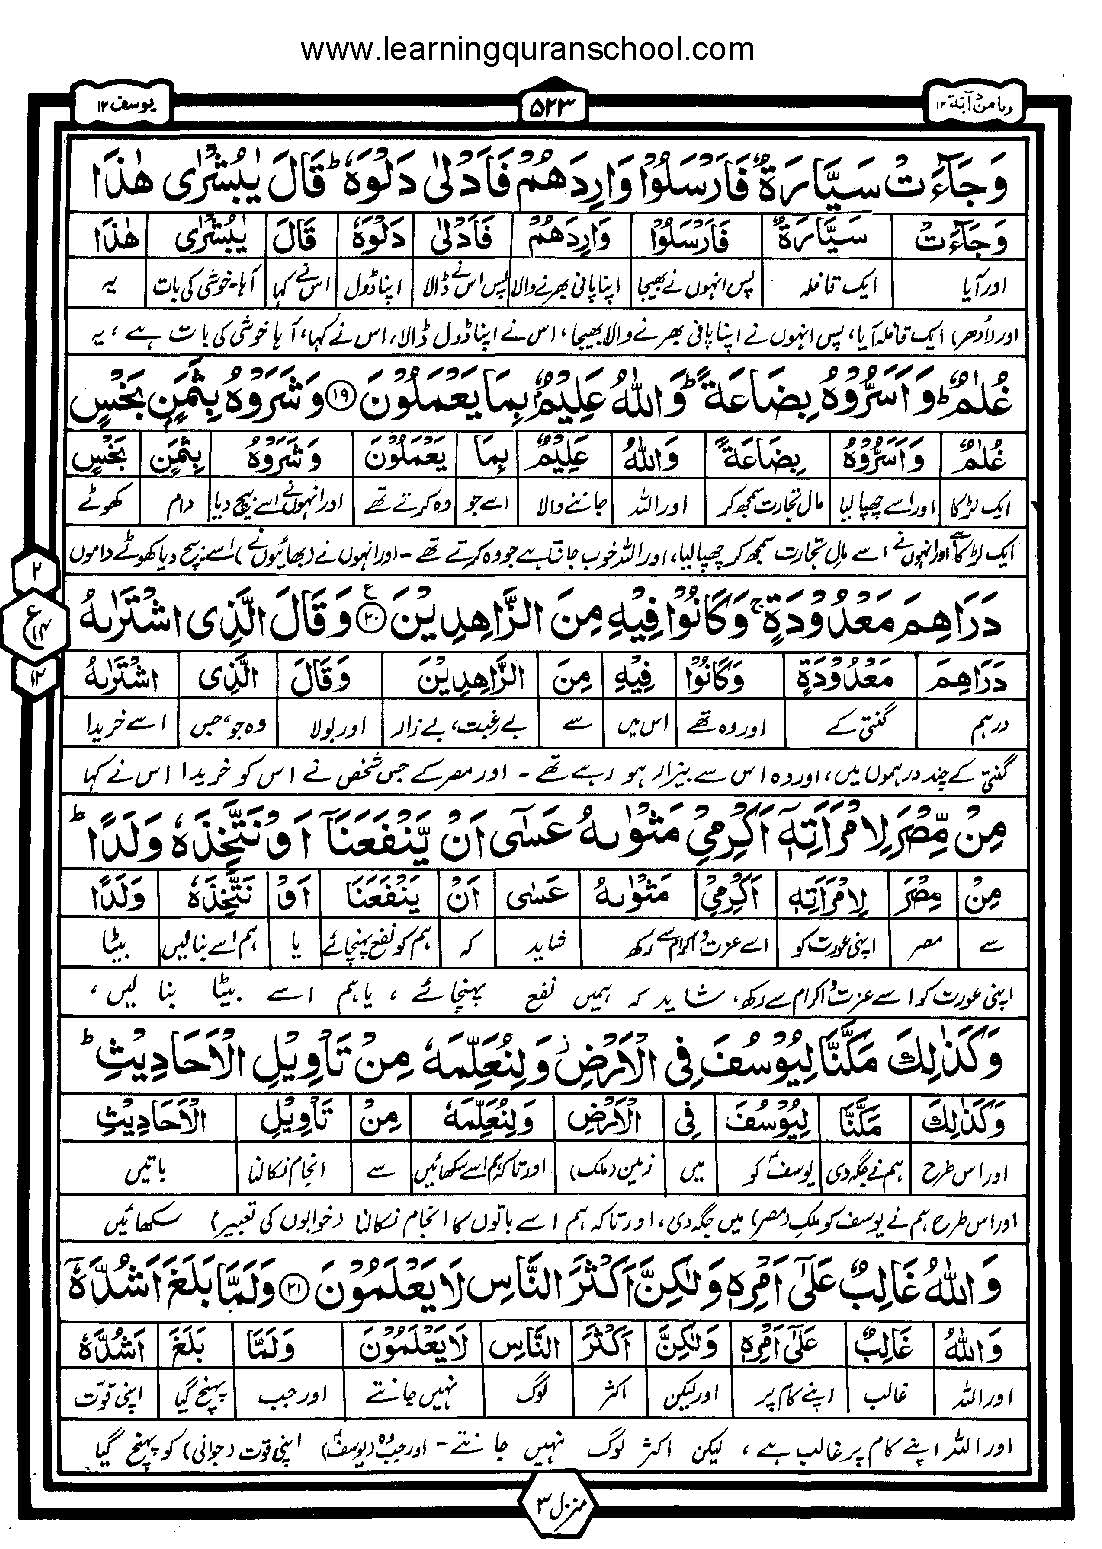 www.learningquranschool.com
وما من دآبة ١٢
۵۲۳
یوسف ١٢
وَجَآءَتْ سَيَّارَةٌ فَاَرْسَلُوْا وَارِدَهُمْ فَاَدْلٰى دَلْوَهٗ ؕ قَالَ يٰبُشْرٰى هٰذَا
وَجَآءَتْ سَيَّارَةٌ فَاَرْسَلُوْا وَارِدَهُمْ فَاَدْلٰى دَلْوَهٗ قَالَ يٰبُشْرٰى هٰذَا
اور آیا ایک قافلہ پس انہوں نے بھیجا اپنا پانی بھرنے والا پس اس نے ڈالا اپنا ڈول اس نے کہا آہا۔خوشی کی بات یہ
اور (اُدھر) ایک قافلہ آیا، پس انہوں نے اپنا پانی بھرنے والا بھیجا، اس نے اپنا ڈول ڈالا، اس نے کہا، آہا خوشی کی بات ہے، یہ
غُلٰمٌ ؕ وَاَسَرُّوْهُ بِضَاعَةً ؕ وَاللّٰهُ عَلِيْمٌۢ بِمَا يَعْمَلُوْنَ ۱۹ وَشَرَوْهُ بِثَمَنٍۭ بَخْسٍ
غُلٰمٌ وَاَسَرُّوْهُ بِضَاعَةً وَاللّٰهُ عَلِيْمٌۢ بِمَا يَعْمَلُوْنَ وَشَرَوْهُ بِثَمَنٍۭ بَخْسٍ
ایک لڑکا اور اسے چھپا لیا مال تجارت سمجھ کر اور اللہ جاننے والا اسے جو وہ کرتے تھے اور انہوں نے اسے بیچ دیا دام کھوٹے
ایک لڑکا ہے اور انہوں نے اسے مالِ تجارت سمجھ کر چھپا لیا، اور اللہ خوب جانتا ہے جو وہ کرتے تھے۔ اور انہوں نے (بھائیوں نے) اسے بیچ دیا کھوٹے داموں
۲
ع
۱۴
۱۲
دَرَاهِمَ مَعْدُوْدَةٍ ۚ وَكَانُوْا فِيْهِ مِنَ الزَّاهِدِيْنَ ۲۰ وَقَالَ الَّذِى اشْتَرٰىهُ
دَرَاهِمَ مَعْدُوْدَةٍ وَكَانُوْا فِيْهِ مِنَ الزَّاهِدِيْنَ وَقَالَ الَّذِى اشْتَرٰىهُ
درہم گنتی کے اور وہ تھے اس میں سے بے رغبت، بے زار اور بولا وہ جو، جس اسے خریدا
گنتی کے چند درہموں میں، اور وہ اس سے بیزار ہو رہے تھے۔ اور مصر کے جس شخص نے اس کو خریدا اس نے کہا
مِنْ مِّصْرَ لِامْرَاَتِهٖٓ اَكْرِمِيْ مَثْوٰىهُ عَسٰٓى اَنْ يَّنْفَعَنَآ اَوْ نَتَّخِذَهٗ وَلَدًا ؕ
مِنْ مِّصْرَ لِامْرَاَتِهٖٓ اَكْرِمِيْ مَثْوٰىهُ عَسٰٓى اَنْ يَّنْفَعَنَا اَوْ نَتَّخِذَهٗ وَلَدًا
سے مصر اپنی عورت کو اسے عزت و اکرام سے رکھ شاید کہ ہم کو نفع پہنچائے یا ہم اسے بنا لیں بیٹا
اپنی عورت کو اسے عزت و اکرام سے رکھ، شاید کہ ہمیں نفع پہنچائے، یا ہم اسے بیٹا بنا لیں،
وَكَذٰلِكَ مَكَّنَّا لِيُوْسُفَ فِى الْاَرْضِ ۫ وَلِنُعَلِّمَهٗ مِنْ تَاْوِيْلِ الْاَحَادِيْثِ ؕ
وَكَذٰلِكَ مَكَّنَّا لِيُوْسُفَ فِى الْاَرْضِ وَلِنُعَلِّمَهٗ مِنْ تَاْوِيْلِ الْاَحَادِيْثِ
اور اس طرح ہم نے جگہ دی یوسفؑ کو میں زمین (ملک) اور تاکہ ہم اسے سکھائیں سے انجام نکالنا باتیں
اور اس طرح ہم نے یوسف کو ملک (مصر) میں جگہ دی، اور تاکہ ہم اسے باتوں کا انجام نکالنا (خوابوں کی تعبیر) سکھائیں
وَاللّٰهُ غَالِبٌ عَلٰٓى اَمْرِهٖ وَلٰكِنَّ اَكْثَرَ النَّاسِ لَا يَعْلَمُوْنَ ۲۱ وَلَمَّا بَلَغَ اَشُدَّهٗٓ
وَاللّٰهُ غَالِبٌ عَلٰٓى اَمْرِهٖ وَلٰكِنَّ اَكْثَرَ النَّاسِ لَا يَعْلَمُوْنَ وَلَمَّا بَلَغَ اَشُدَّهٗٓ
اور اللہ غالب اپنے کام پر اور لیکن اکثر لوگ نہیں جانتے اور جب پہنچ گیا اپنی قوت
اور اللہ اپنے کام پر غالب ہے، لیکن اکثر لوگ نہیں جانتے۔ اور جب وہ (یوسفؑ) اپنی قوت (جوانی) کو پہنچ گیا
منزل ۳